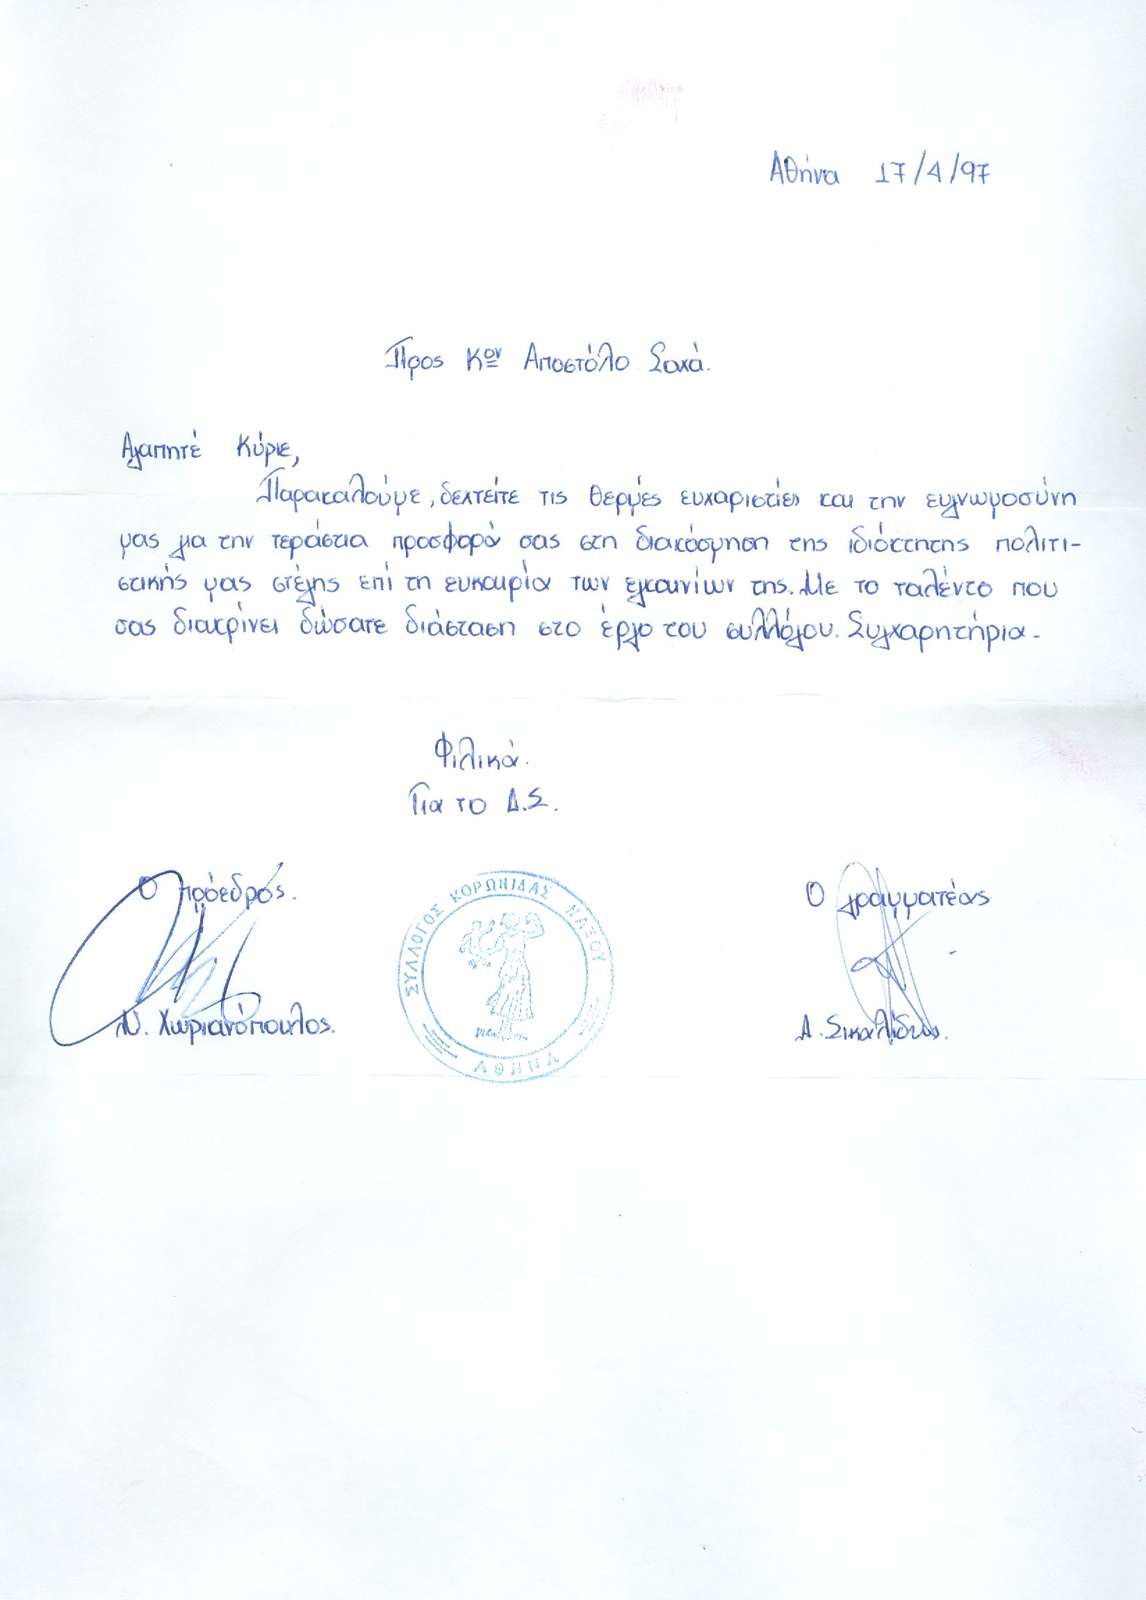 Αθήνα 17/4/97
Προς Κον Αποστόλο Σακά.
Αγαπητέ Κύριε,
Παρακαλούμε, δεχτείτε τις θερμές ευχαριστίες και την ευγνωμοσύνη
μας για την τεράστια προσφορά σας στη διακόσμηση της ιδιόκτητης πολιτι-
στικής μας στέγης επί τη ευκαιρία των εγκαινίων της. Με το ταλέντο που
σας διακρίνει δώσατε διάσταση στο έργο του συλλόγου. Συγχαρητήρια.
Φιλικά.
Για το Δ.Σ.
Ο πρόεδρός.
Ο γραμματέας
Ν. Χωριανόπουλος.
ΣΥΛΛΟΓΟΣ ΚΟΡΩΝΙΔΑΣ ΝΑΞΟΥ
ΑΘΗΝΑ